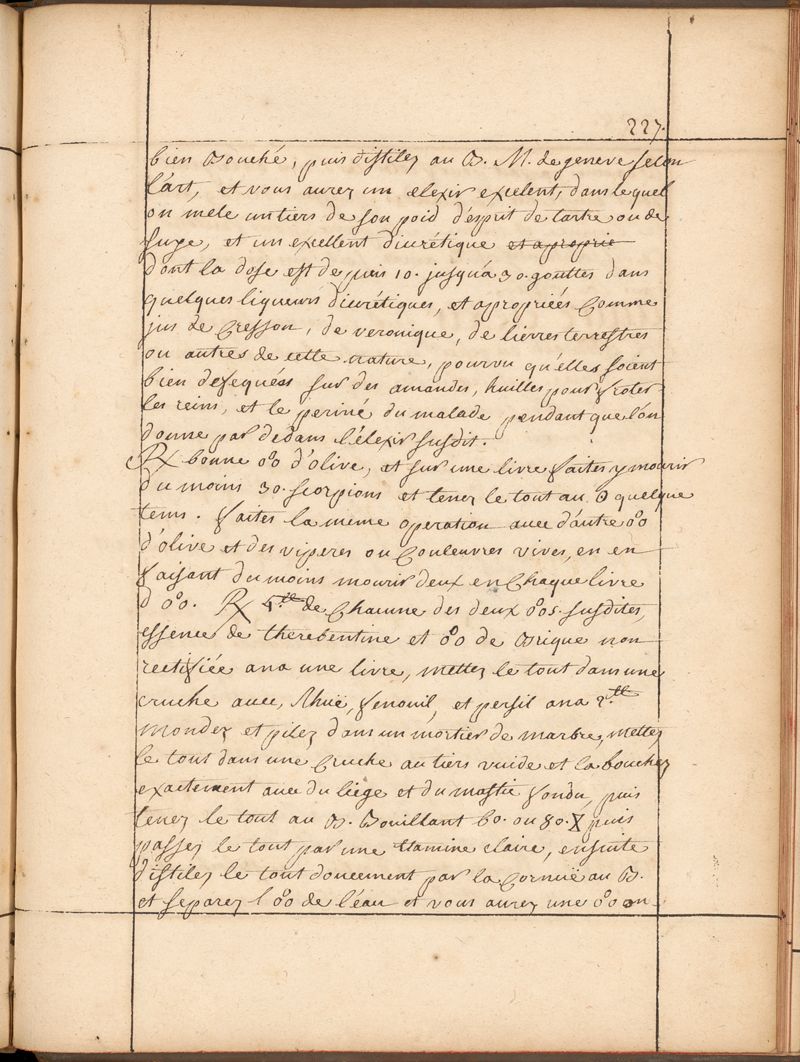 227.
bien Bouché, puis distilez au B. M. de geneve selon
l'art, et vous aurez un elexir excelent, dans lequel
on mele un tiers de son poid d'esprit de tartre ou de
suye, et un excellent diurétique et a proprié
dont la dose est de puis 10. jusqu'a 30. gouttes dans
quelques liqueurs diurétiques, et apropriées comme
jus de cresson, de veronique, de lierres terrestres
ou autres de cette nature, pourvu qu'elles soient
bien desequées sur des amandes, huilles pour froter
les reins, et le periné du malade pendant que l'on
donne par dedans l'élexir susdit.
℞ bonne o°o d'olive, et sur une livre faites y mourir
du moins 30. scorpions et tenez le tout au quelque
tems. faites la meme operation avec d'autre o°o
d'olive et des viperes ou couleuvres vives, en en
faisant du moins mourir deux en chaque livre
d o°o. ℞ de chacune des deux o°os. susdites,
essence de therebentine et o°o de Brique non
rectifiée ana une livre, mettez le tout dans une
cruche avec, Rhuë, fenouil, et persil ana
mondez et pilez dans un mortier de marbre, mettez
le tout dans une cruche au tiers vuide et la bouchez
exactement avec du liege et du mastic fondu, puis
tenez le tout au B. Bouillant 60. ou 80. X puis
passez le tout par une Etamine claire, ensuite
distilez le tout doucement par la cornuë au B.
et separez l o°o de l'eau et vous aurez une o°o on